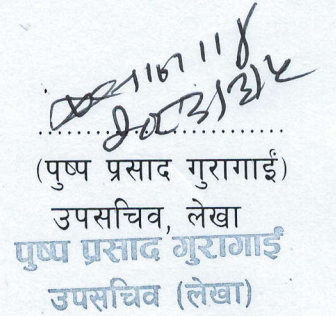 (पुष्प प्रसाद गुरागाईं)
उपसचिव, लेखा
पुष्प प्रसाद गुरागाईं
उपसचिव (लेखा)